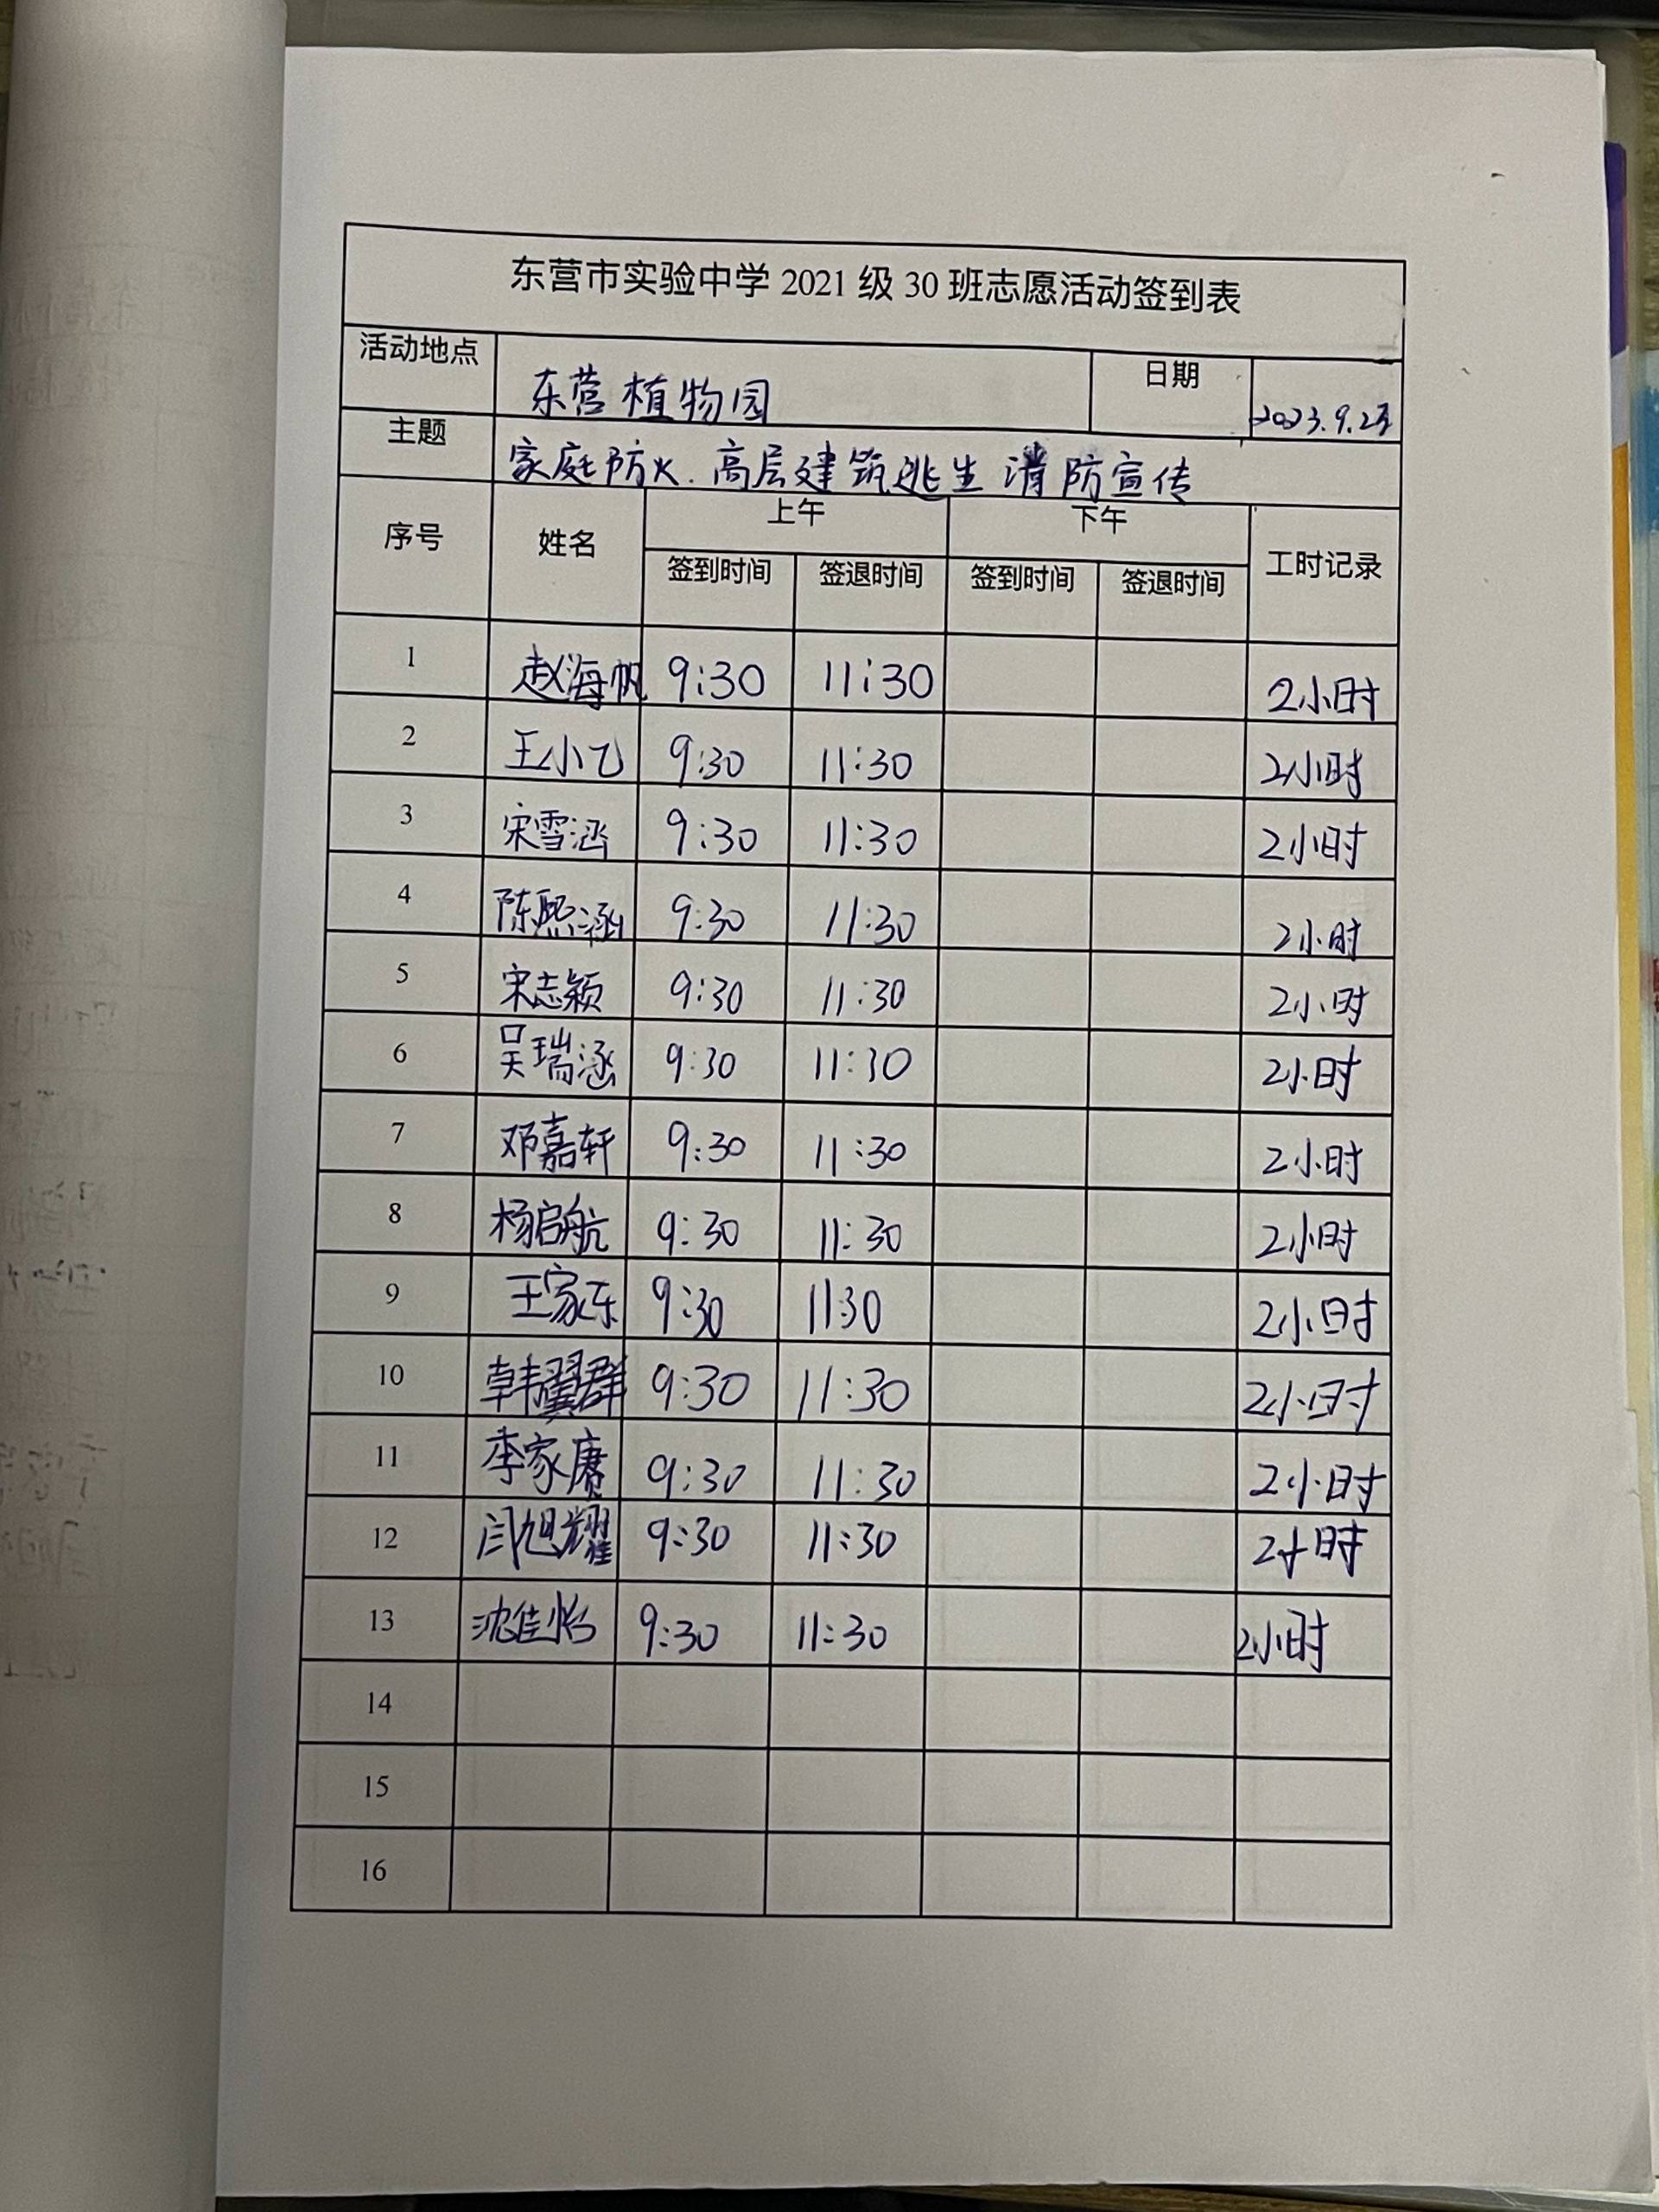 东营市实验中学 2021 级 30 班志愿活动签到表
活动地点 东营植物园 日期
主题 家庭防火.高层建筑逃生 消防宣传
序号 姓名 上午 下午 工时记录
签到时间 签退时间 签到时间 签退时间
1 赵海帆 9:30 11:30 2小时
2 王小乙 9:30 11:30 2小时
3 宋雪涵 9:30 11:30 2小时
4 陈熙涵 9:30 11:30 2小时
5 宋志颖 9:30 11:30 2小时
6 吴瑞涵 9:30 11:30 2小时
7 邓嘉轩 9:30 11:30 2小时
8 杨启航 9:30 11:30 2小时
9 王家乐 9:30 11:30 2小时
10 韩翼群 9:30 11:30 2小时
11 李家赓 9:30 11:30 2小时
12 闫旭耀 9:30 11:30 2小时
13 沈佳怡 9:30 11:30 2小时
14
15
16